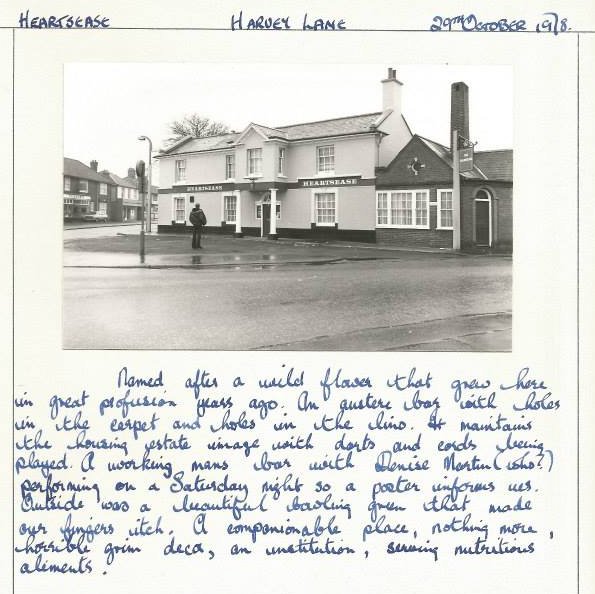 HEARTSEASE HARVEY LANE 29TH OCTOBER 1978.
HEARTSEASE HEARTSEASE
Named after a wild flower that grew here
in great profusion years ago. An austere bar with holes
in the carpet and holes in the lino. It maintains
the housing estate image with darts and cards being
played. A working mans bar with Denise Martin (who?)
performing on a Saturday night so a poster informs us.
Outside was a beautiful bowling green that made
our fingers itch. A companionable place, nothing more,
horrible grim decor, an institution, serving nutritious
aliments.